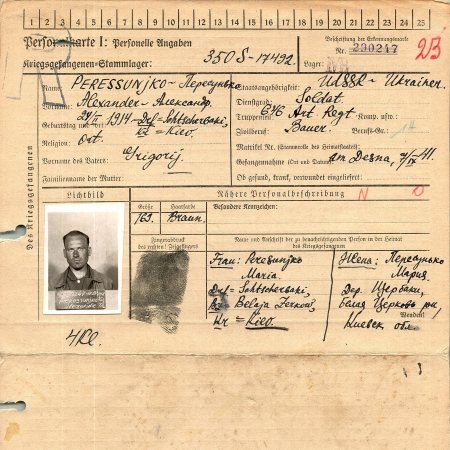 1 2 3 4 5 6 7 8 9 10 11 12 13 14 15 16 17 18 19 20 21 22 23 24 25
Personalkarte I: Personelle Angaben
Beschriftung der Erkennungsmarke
Kriegsgefangenen-Stammlager:
350 S-17492.
Nr. 290247
23
Lager:
Des Kriegsgefangenen
Name: PERESSUNJKO - Пересунько
Staatsangehörigkeit: UdSSR - Ukrainer.
Vorname: Alexander - Александр.
Dienstgrad: Soldat.
Truppenteil: 646 Art Regt Komp. usw.:
Geburtstag und -ort: 1914 Df = Schtscherbaki,
Kr = Kiew.
Zivilberuf: Bauer. Berufs-Gr.:
Religion: Ort.
Matrikel Nr. (Stammrolle des Heimatstaates):
Vorname des Vaters: Grigorij.
Gefangennahme (Ort und Datum): am Desna, 41.
Familienname der Mutter:
Ob gesund, krank, verwundet eingeliefert:
Lichtbild
Nähere Personalbeschreibung
N
Größe
Haarfarbe
Besondere Kennzeichen:
163.
Braun.
Fingerabdruck
des rechten! Zeigefingers
Name und Anschrift der zu benachrichtigenden Person in der Heimat
des Kriegsgefangenen
Frau: Peresunjko
Maria.
Df = Schtscherbaki,
Belaja Zerkow,
Kr = Kiew.
Жена: Пересунько
Мария.
Дер. Щербаки,
белая Церковь
Киевск обл
Wenden!